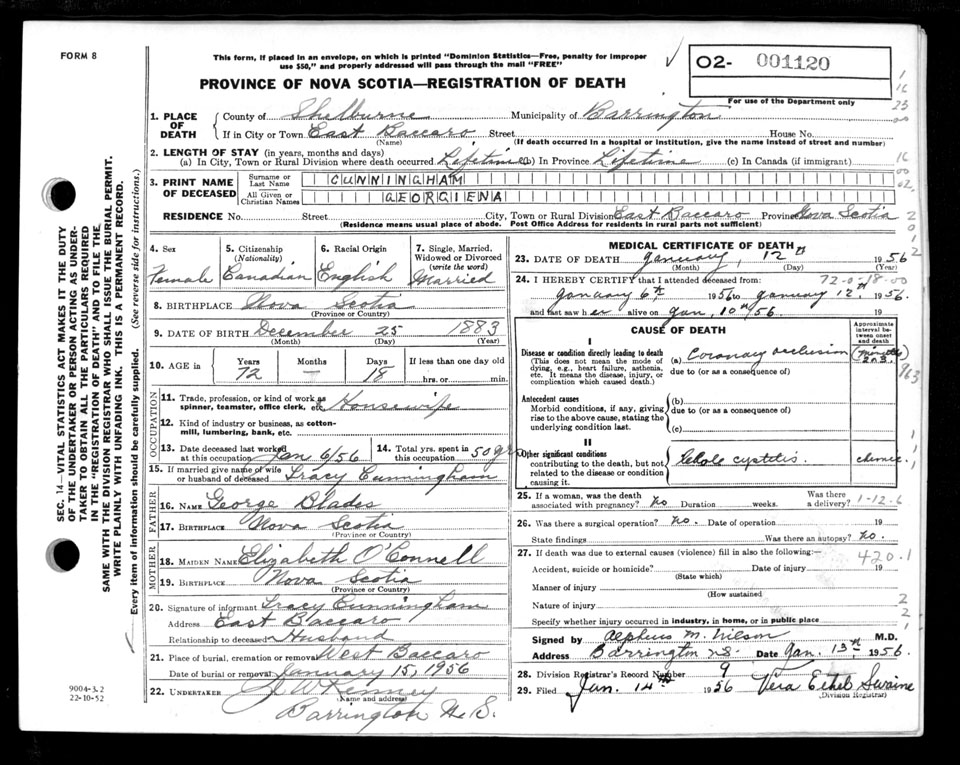 FORM 8
This form, if placed in an envelope, on which is printed "Dominion Statistics—Free, penalty for improper
use $50," and properly addressed will pass through the mail "FREE"
PROVINCE OF NOVA SCOTIA—REGISTRATION OF DEATH
O2- 001120
For use of the Department only
1. PLACE OF DEATH
County of Shelburne Municipality of Barrington
If in City or Town East Baccaro Street House No.
(Name) (If death occurred in a hospital or institution, give the name instead of street and number)
2. LENGTH OF STAY (in years, months and days)
(a) In City, Town or Rural Division where death occurred Lifetime (b) In Province Lifetime (c) In Canada (if immigrant)
3. PRINT NAME OF DECEASED
Surname or Last Name CUNNINGHAM
All Given or Christian Names GEORGIENA
RESIDENCE No. Street City, Town or Rural Division East Baccaro Province Nova Scotia
(Residence means usual place of abode. Post Office Address for residents in rural parts not sufficient)
4. Sex Female
5. Citizenship (Nationality) Canadian
6. Racial Origin English
7. Single, Married, Widowed or Divorced (write the word) Married
8. BIRTHPLACE Nova Scotia
(Province or Country)
9. DATE OF BIRTH December 25 1883
(Month) (Day) (Year)
10. AGE in Years 72 Months — Days 18 If less than one day old hrs. or min.
OCCUPATION
11. Trade, profession, or kind of work as spinner, teamster, office clerk, etc. Housewife
12. Kind of industry or business, as cotton-mill, lumbering, bank, etc.
13. Date deceased last worked at this occupation Jan 6/56
14. Total yrs. spent in this occupation 50 yrs
15. If married give name of wife or husband of deceased Tracy Cunningham
FATHER
16. NAME George Blades
17. BIRTHPLACE Nova Scotia
(Province or Country)
MOTHER
18. MAIDEN NAME Elizabeth O'Connell
19. BIRTHPLACE Nova Scotia
(Province or Country)
20. Signature of informant Tracy Cunningham
Address East Baccaro
Relationship to deceased Husband
21. Place of burial, cremation or removal West Baccaro
Date of burial or removal January 15, 1956
22. UNDERTAKER J W Kenney
(Name and address)
Barrington N.S.
MEDICAL CERTIFICATE OF DEATH
23. DATE OF DEATH January, 12th 1956
(Month) (Day) (Year)
24. I HEREBY CERTIFY that I attended deceased from
January 6th 1956 to January 12th 1956.
and last saw her alive on Jan, 10th/56. 19
CAUSE OF DEATH
Approximate interval between onset and death
I
Disease or condition directly leading to death
(This does not mean the mode of dying, e.g., heart failure, asthenia, etc. It means the disease, injury, or complication which caused death.)
(a) Coronary occlusion (minutes 2 or 3.
due to (or as a consequence of)
Antecedent causes
Morbid conditions, if any, giving rise to the above cause, stating the underlying condition last.
(b)
due to (or as a consequence of)
(c)
II
Other significant conditions
contributing to the death, but not related to the disease or condition causing it.
Chole cystitis. chronic.
25. If a woman, was the death associated with pregnancy? no Duration weeks. Was there a delivery? 1-12-6
26. Was there a surgical operation? no. Date of operation 19
State findings Was there an autopsy? no.
27. If death was due to external causes (violence) fill in also the following:— 420.1
Accident, suicide or homicide? Date of injury 19
(State which)
Manner of injury
(How sustained
Nature of injury
Specify whether injury occurred in industry, in home, or in public place
Signed by Alpheus M. Wilson M.D.
Address Barrington N.S. Date Jan. 13th, 1956.
28. Division Registrar's Record Number 9
29. Filed Jan. 14th 1956 Vera Ethel Swaine
(Division Registrar)
SEC. 14—VITAL STATISTICS ACT MAKES IT THE DUTY
OF THE UNDERTAKER OR PERSON ACTING AS UNDER-
TAKER TO OBTAIN ALL THE PARTICULARS REQUIRED
IN THE "REGISTRATION OF DEATH" AND TO FILE THE
SAME WITH THE DIVISION REGISTRAR WHO SHALL ISSUE THE BURIAL PERMIT.
WRITE PLAINLY WITH UNFADING INK. THIS IS A PERMANENT RECORD.
Every item of information should be carefully supplied. (See reverse side for instructions.)
9004-3.2
22-10-52